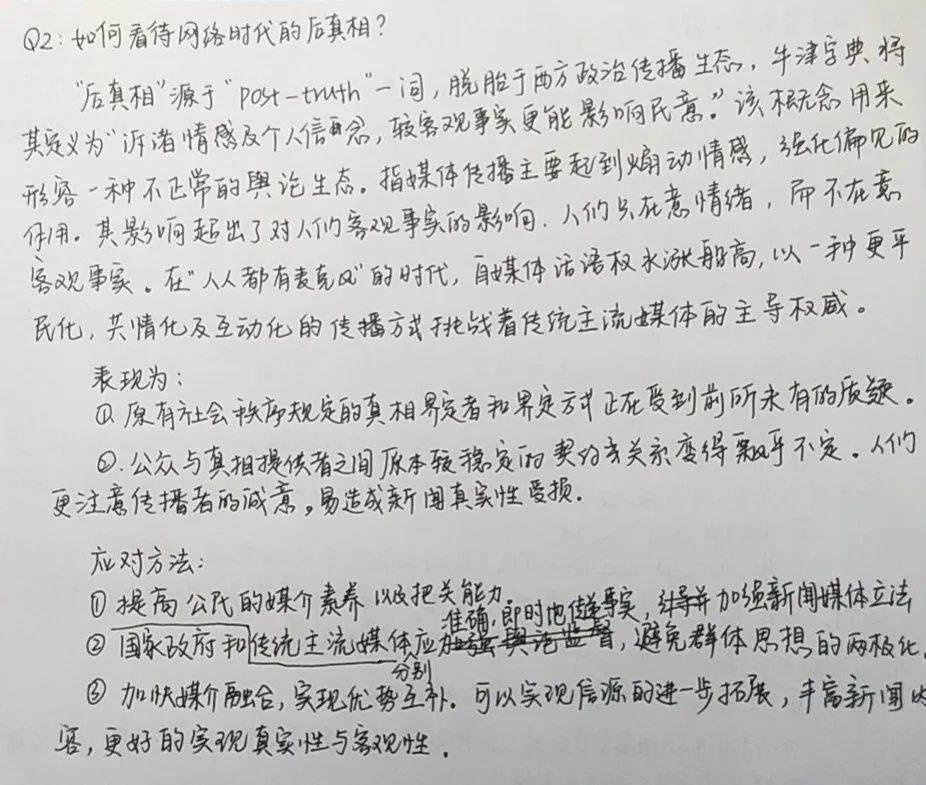 Q2：如何看待网络时代的后真相？
"后真相"源于"post-truth"一词，脱胎于西方政治传播生态，牛津字典将
其定义为"诉诸情感及个人信念，较客观事实更能影响民意。"该概念用来
形容一种不正常的舆论生态。指媒体传播主要起到煽动情感，强化偏见的
作用。其影响超出了对人们客观事实的影响，人们只在意情绪，而不在意
客观事实。在"人人都有麦克风"的时代，自媒体话语权水涨船高，以一种更平
民化，共情化及互动化的传播方式挑战着传统主流媒体的主导权威。
表现为：
①原有社会秩序规定的真相界定者和界定方式正在受到前所未有的质疑。
②.公众与真相提供者之间原本较稳定的契约亲关系变得飘乎不定。人们
更注意传播者的诚意，易造成新闻真实性受损.
应对方法：
①提高公民的媒介素养以及把关能力.
准确,即时地传递事实,
加强新闻媒体立法
②国家政府和传统主流媒体应加强舆论监督，避免群体思想的两极化.
分别
③加快媒介融合，实现优势互补。可以实现信源的进一步拓展，丰富新闻内
容，更好的实现真实性与客观性.